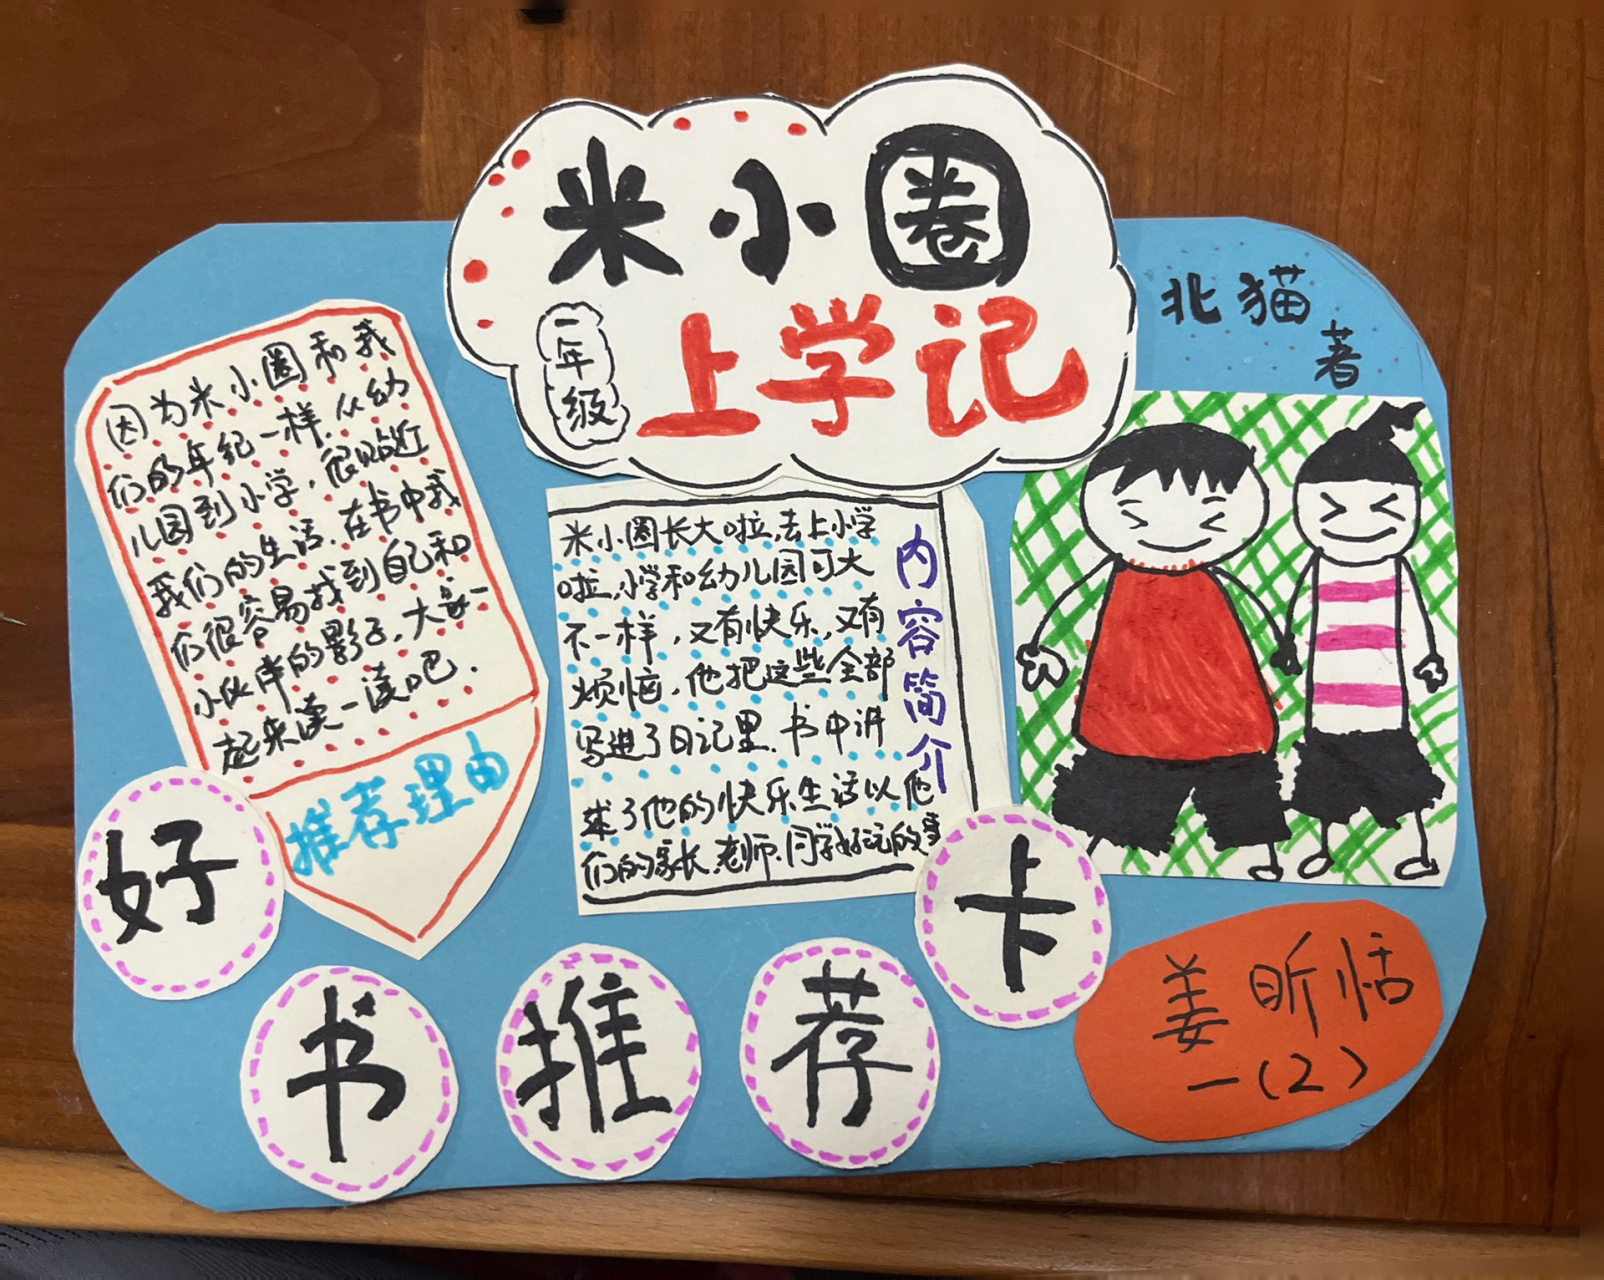 米小圈
一年级
上学记
北猫
著
因为米小圈和我
们的年纪一样.从幼
儿园到小学，很贴近
我们的生活.在书中我
们很容易找到自己和
小伙伴的影子.大家一
起来读一读吧.
推荐理由
内容简介
米小圈长大啦,去上小学
啦,小学和幼儿园可大
不一样，又有快乐,又有
烦恼，他把这些全部
写进了日记里.书中讲
述了他的快乐生活以他
们的家长.老师.同学好玩的事
好书推荐卡
姜昕恬
一(2)